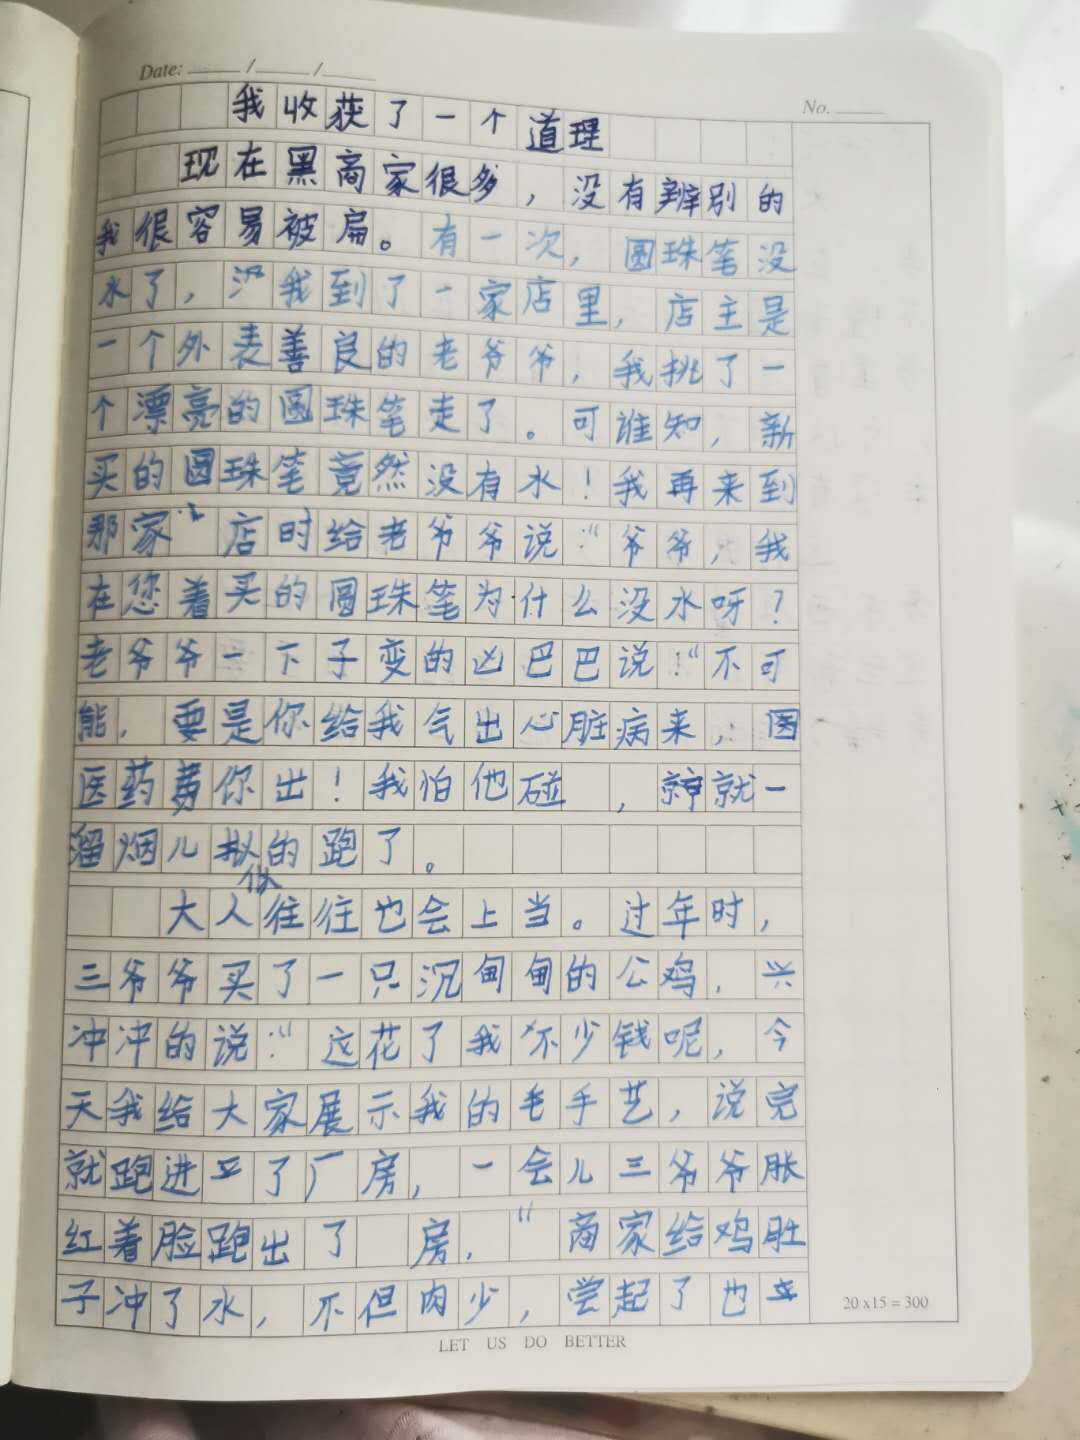 Date: ___/___/___
No. ___
我收获了一个道理
现在黑商家很多，没有辨别的
我很容易被扁。有一次，圆珠笔没
水了，我到了一家店里，店主是
一个外表善良的老爷爷，我挑了一
个漂亮的圆珠笔走了。可谁知，新
买的圆珠笔竟然没有水！我再来到
那家店时给老爷爷说：“爷爷，我
在您着买的圆珠笔为什么没水呀？
老爷爷一下子变的凶巴巴说：“不可
能，要是你给我气出心脏病来，
医药费你出！我怕他碰，就一
溜烟儿似的跑了。
大人往往也会上当。过年时，
三爷爷买了一只沉甸甸的公鸡，兴
冲冲的说：“这花了我不少钱呢，今
天我给大家展示我的毛手艺，说完
就跑进了厂房，一会儿三爷爷胀
红着脸跑出了 房，“商家给鸡肚
子冲了水，不但肉少，尝起了也
20 x15 = 300
LET US DO BETTER